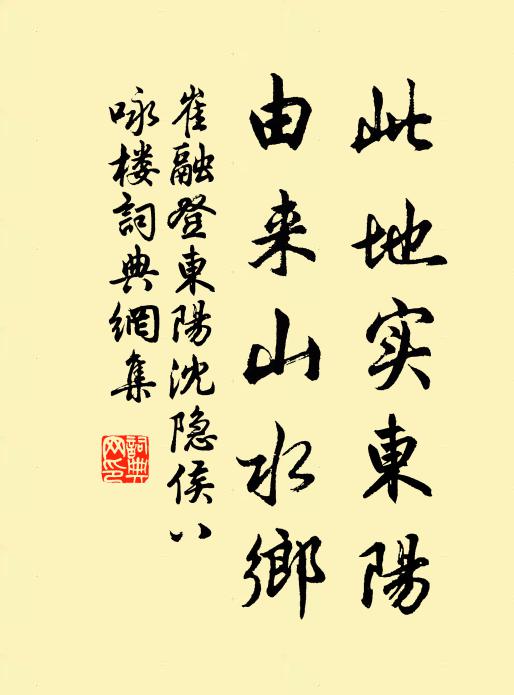 此地实東陽
由来山水鄉
崔融登東陽沈隐侯八
咏楼詞典網集
詞典网印